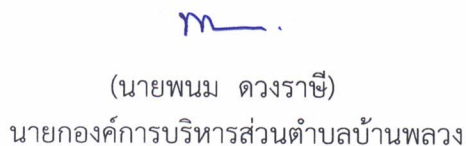 (นายพนม ดวงราษี)
นายกองค์การบริหารส่วนตำบลบ้านพลวง